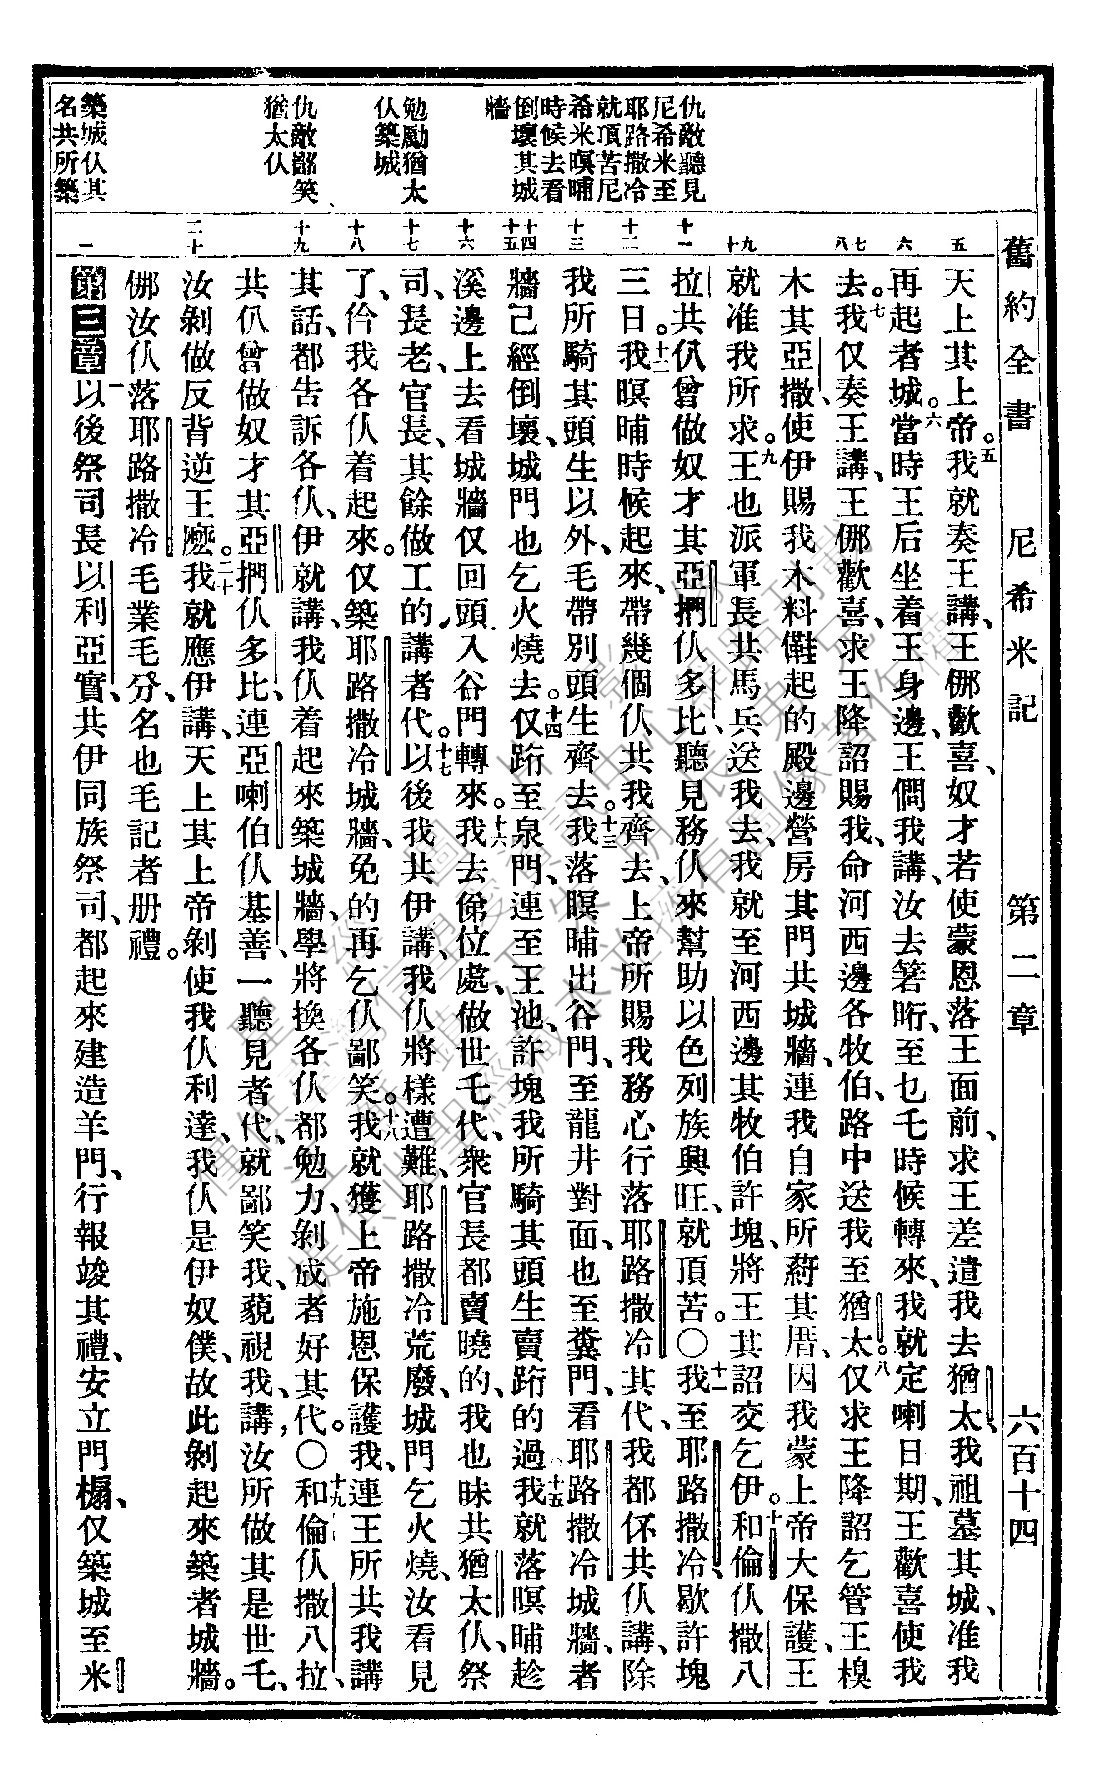 舊約全書　尼希米記　第二章　六百十四
仇敵聽見
尼希米至
耶路撒冷
就頂苦尼
希米暝晡
時候去看
倒壞其城
牆
勉勵猶太
仈築城
仇敵鄙笑
猶太仈
築城仈其
名共所築
五
六
七
八
九
十
十一
十二
十三
十四
十五
十六
十七
十八
十九
二十
一
天上其上帝。五我就奏王講、王㑚歡喜、奴才若使蒙恩落王面前、求王差遣我去猶太我祖墓其城、准我
再起者城。六當時王后坐着王身邊、王僴我講、汝去箬晰、至乜乇時候轉來、我就定喇日期、王歡喜使我
去。七我仅奏王講、王㑚歡喜、求王降詔賜我、命河西邊各牧伯、路中送我至猶太。八仅求王降詔乞管王樔
木其亞撒、使伊賜我木料、鞋起的殿邊營房其門、共城牆、連我自家所蔚其厝、因我蒙上帝大保護、王
就准我所求。九王也派軍長共馬兵送我去、我就至河西邊其牧伯許塊、將王其詔交乞伊。十和倫仈撒八
拉、共仈曾做奴才其亞捫仈多比、聽見務仈來幫助以色列族興旺、就頂苦。〇十一我至耶路撒冷、歇許塊
三日。十二我暝晡時候起來、帶幾個仈共我齊去、上帝所賜我務心行落耶路撒冷其代、我都伓共仈講、除
我所騎其頭生以外、毛帶別頭生齊去。十三我落暝晡出谷門、至龍井對面、也至糞門、看耶路撒冷城牆、者
牆己經倒壞、城門也乞火燒去。十四仅跨至泉門、連至王池、許塊我所騎其頭生賣跨的過。十五我就落暝晡趁
溪邊上去看城牆仅回頭、入谷門轉來。十六我去俤位處、做世乇代、衆官長都賣曉的、我也昧共猶太仈、祭
司、長老、官長、其餘做工的講者代。十七以後我共伊講、我仈將樣遭難、耶路撒冷荒廢、城門乞火燒、汝看見
了、仱我各仈着起來。仅築耶路撒冷城牆、免的再乞仈鄙笑。十八我就獲上帝施恩保護我、連王所共我講
其話、都告訴各仈、伊就講、我仈着起來築城牆、學將換各仈都勉力、剝成者好其代。〇十九和倫仈撒八拉、
共仈曾做奴才其亞捫仈多比、連亞喇伯仈基善、一聽見者代、就鄙笑我、藐視我講、汝所做其是世乇、
汝剝做反背逆王麼。二十我就應伊講、天上其上帝剝使我仈利達、我仈是伊奴僕、故此剝起來築者城牆。
㑚汝仈落耶路撒冷毛業毛分、名也毛記者册禮。
第三章一以後祭司長以利亞實、共伊同族祭司、都起來建造羊門、行報竣其禮、安立門榻、仅築城至米